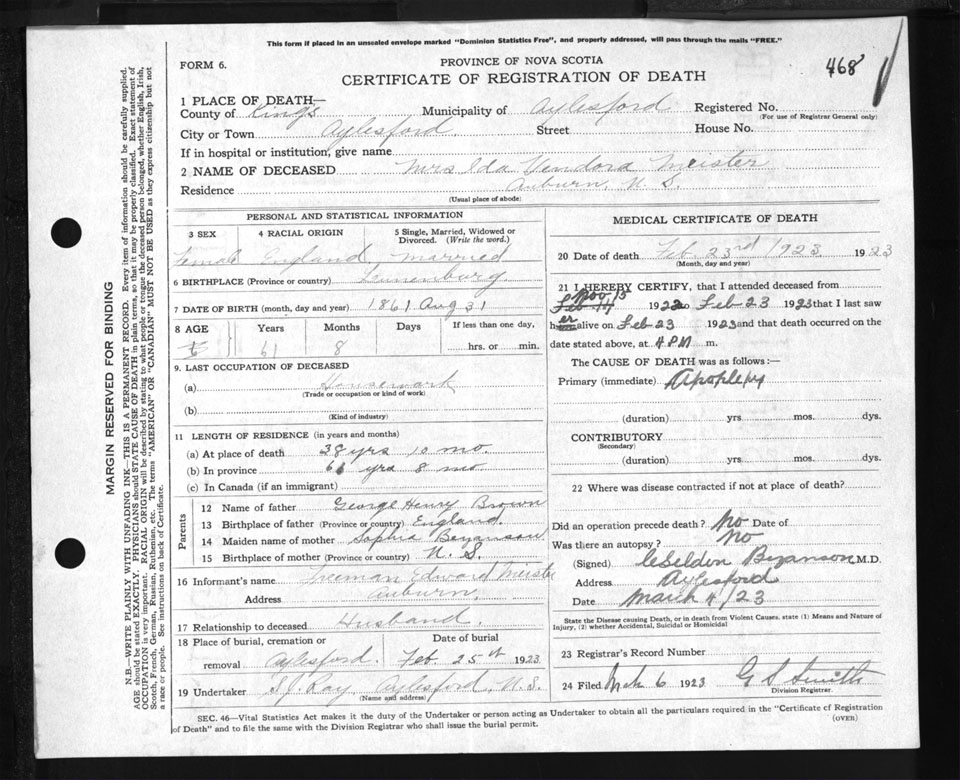 This form if placed in an unsealed envelope marked "Dominion Statistics Free", and properly addressed, will pass through the mails "FREE."
FORM 6.
PROVINCE OF NOVA SCOTIA
468
CERTIFICATE OF REGISTRATION OF DEATH
1 PLACE OF DEATH—
County of Kings Municipality of Aylesford Registered No.
(For use of Registrar General only)
City or Town Aylesford Street House No.
If in hospital or institution, give name
2 NAME OF DECEASED Mrs Ida Vendora Meister
Residence Auburn, N. S.
(Usual place of abode)
MARGIN RESERVED FOR BINDING
N.B.—WRITE PLAINLY WITH UNFADING INK—THIS IS A PERMANENT RECORD. Every item of information should be carefully supplied.
AGE should be stated EXACTLY. PHYSICIANS should STATE CAUSE OF DEATH in plain terms, so that it may be properly classified. Exact statement of
OCCUPATION is very important. RACIAL ORIGIN will be described by stating to what people or tongue the deceased person belonged, whether English, Irish,
Scotch, French, German, Russian, Ruthenian, etc. The terms "AMERICAN" OR "CANADIAN" MUST NOT BE USED as they express citizenship but not
a race or people. See instructions on back of Certificate.
PERSONAL AND STATISTICAL INFORMATION
3 SEX 4 RACIAL ORIGIN 5 Single, Married, Widowed or
Divorced. (Write the word.)
Female England, Married
6 BIRTHPLACE (Province or country) Lunenburg
7 DATE OF BIRTH (month, day and year) 1861 Aug 31
8 AGE Years Months Days If less than one day,
61 8 hrs. or min.
9. LAST OCCUPATION OF DECEASED
(a) Housework
(Trade or occupation or kind of work)
(b)
(Kind of industry)
11 LENGTH OF RESIDENCE (in years and months)
(a) At place of death 38 yrs 10 mo.
(b) In province 61 yrs 8 mo
(c) In Canada (if an immigrant)
Parents
12 Name of father George Henry Brown
13 Birthplace of father (Province or country) England.
14 Maiden name of mother Sophia Bezanson
15 Birthplace of mother (Province or country) N. S.
16 Informant's name Freeman Edward Meister
Address Auburn,
17 Relationship to deceased Husband.
18 Place of burial, cremation or Date of burial
removal Aylesford. Feb. 25th 1923
19 Undertaker S. J. Ray Aylesford, N. S.
(Name and address)
MEDICAL CERTIFICATE OF DEATH
20 Date of death Feb. 23rd 1923 1923
(Month, day and year)
21 I HEREBY CERTIFY, that I attended deceased from
Nov 15
Feb 1922 to Feb 23 1923 that I last saw
her alive on Feb 23 1923 and that death occurred on the
date stated above, at 4 P M m.
The CAUSE OF DEATH was as follows:—
Primary (immediate) Apoplexy
(duration) yrs. mos. dys.
CONTRIBUTORY
(Secondary)
(duration) yrs. mos. dys.
22 Where was disease contracted if not at place of death?
Did an operation precede death? No Date of
Was there an autopsy? No
(Signed) Bezanson M.D.
Address Aylesford
Date March 4/23
State the Disease causing Death, or in death from Violent Causes, state (1) Means and Nature of
Injury, (2) whether Accidental, Suicidal or Homicidal
23 Registrar's Record Number
24 Filed Mch 6 1923 G S Smith
Division Registrar.
SEC. 46—Vital Statistics Act makes it the duty of the Undertaker or person acting as Undertaker to obtain all the particulars required in the "Certificate of Registration
of Death" and to file the same with the Division Registrar who shall issue the burial permit.
(OVER)